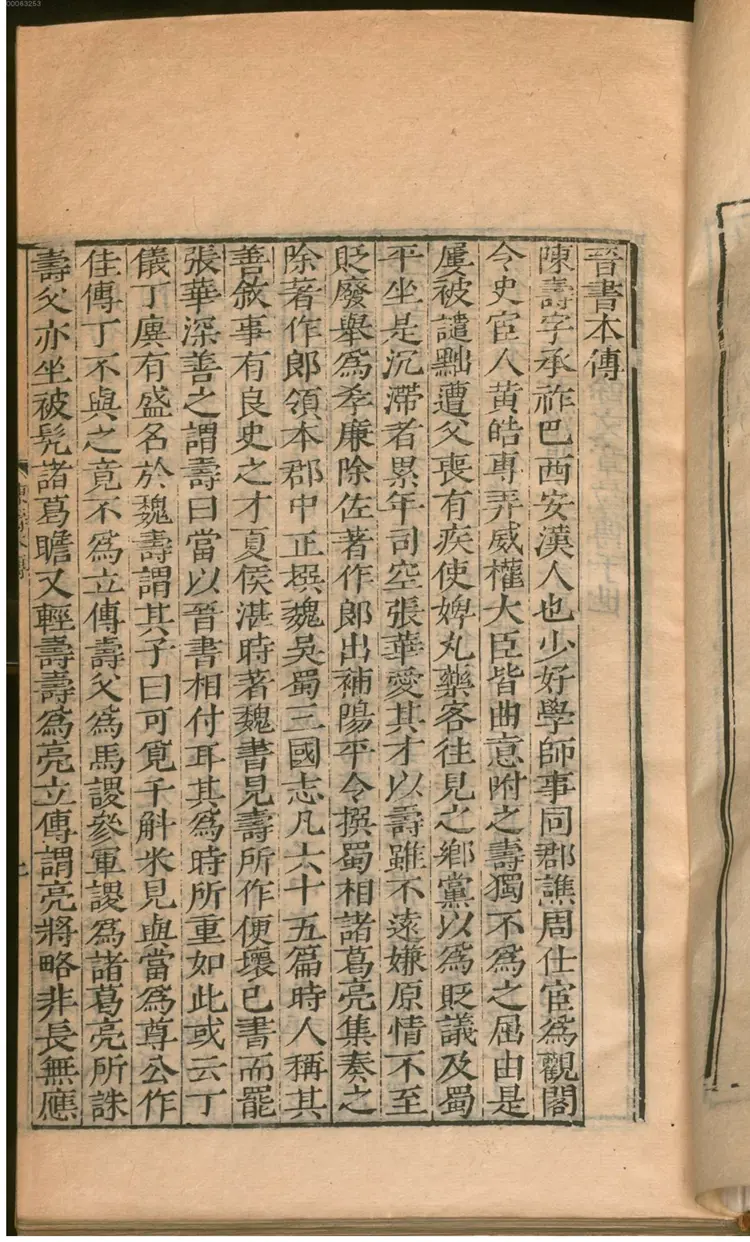 00063253
晉書本傳
陳壽字承祚巴西安漢人也少好學師事同郡譙周仕宦為觀閣
令史宦人黃皓專弄威權大臣皆曲意附之壽獨不為之屈由是
屢被譴黜遭父喪有疾使婢丸藥客往見之鄉黨以為貶議及蜀
平坐是沉滯者累年司空張華愛其才以壽雖不遠嫌原情不至
貶廢舉為孝廉除佐著作郎出補陽平令撰蜀相諸葛亮集奏之
除著作郎領本郡中正撰魏吳蜀三國志凡六十五篇時人稱其
善敘事有良史之才夏侯湛時著魏書見壽所作便壞己書而罷
張華深善之謂壽曰當以晉書相付耳其為時所重如此或云丁
儀丁廙有盛名於魏壽謂其子曰可覓千斛米見與當為尊公作
佳傳丁不與之竟不為立傳壽父為馬謖參軍謖為諸葛亮所誅
壽父亦坐被髡諸葛瞻又輕壽壽為亮立傳謂亮將略非長無應